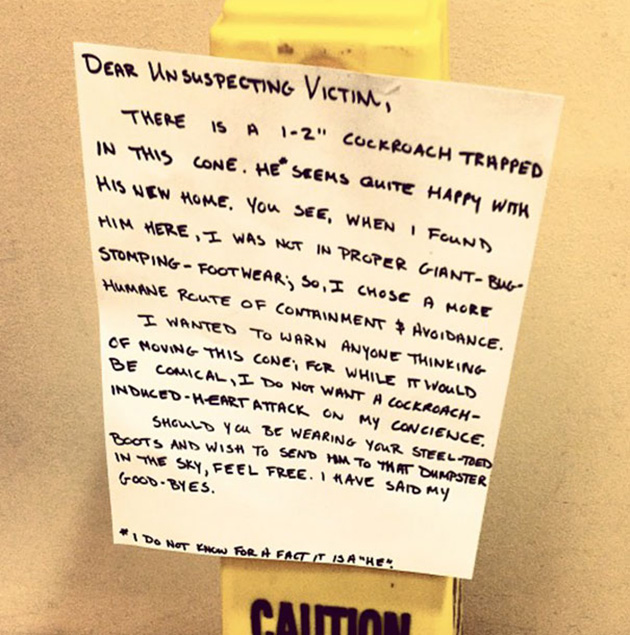 DEAR UNSUSPECTING VICTIM,
THERE IS A 1-2" COCKROACH TRAPPED
IN THIS CONE. HE* SEEMS QUITE HAPPY WITH
HIS NEW HOME. YOU SEE, WHEN I FOUND
HIM HERE, I WAS NOT IN PROPER GIANT-BUG-
STOMPING-FOOTWEAR; SO, I CHOSE A MORE
HUMANE ROUTE OF CONTAINMENT & AVOIDANCE.
I WANTED TO WARN ANYONE THINKING
OF MOVING THIS CONE; FOR WHILE IT WOULD
BE COMICAL, I DO NOT WANT A COCKROACH-
INDUCED-HEART ATTACK ON MY CONCIENCE.
SHOULD YOU BE WEARING YOUR STEEL-TOED
BOOTS AND WISH TO SEND HIM TO THAT DUMPSTER
IN THE SKY, FEEL FREE. I HAVE SAID MY
GOOD-BYES.
*I DO NOT KNOW FOR A FACT IT IS A "HE".
CAUTION